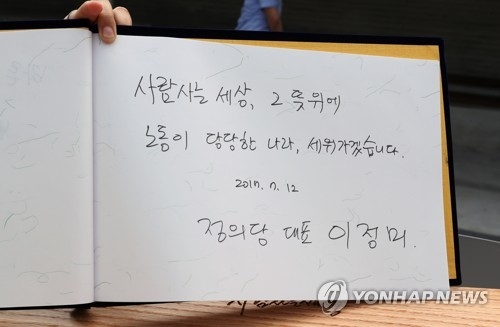 사람사는 세상, 그 뜻위에
노동이 당당한 나라, 세워가겠습니다.
2017. 7. 12
정의당 대표 이정미.
YONHAPNEWS